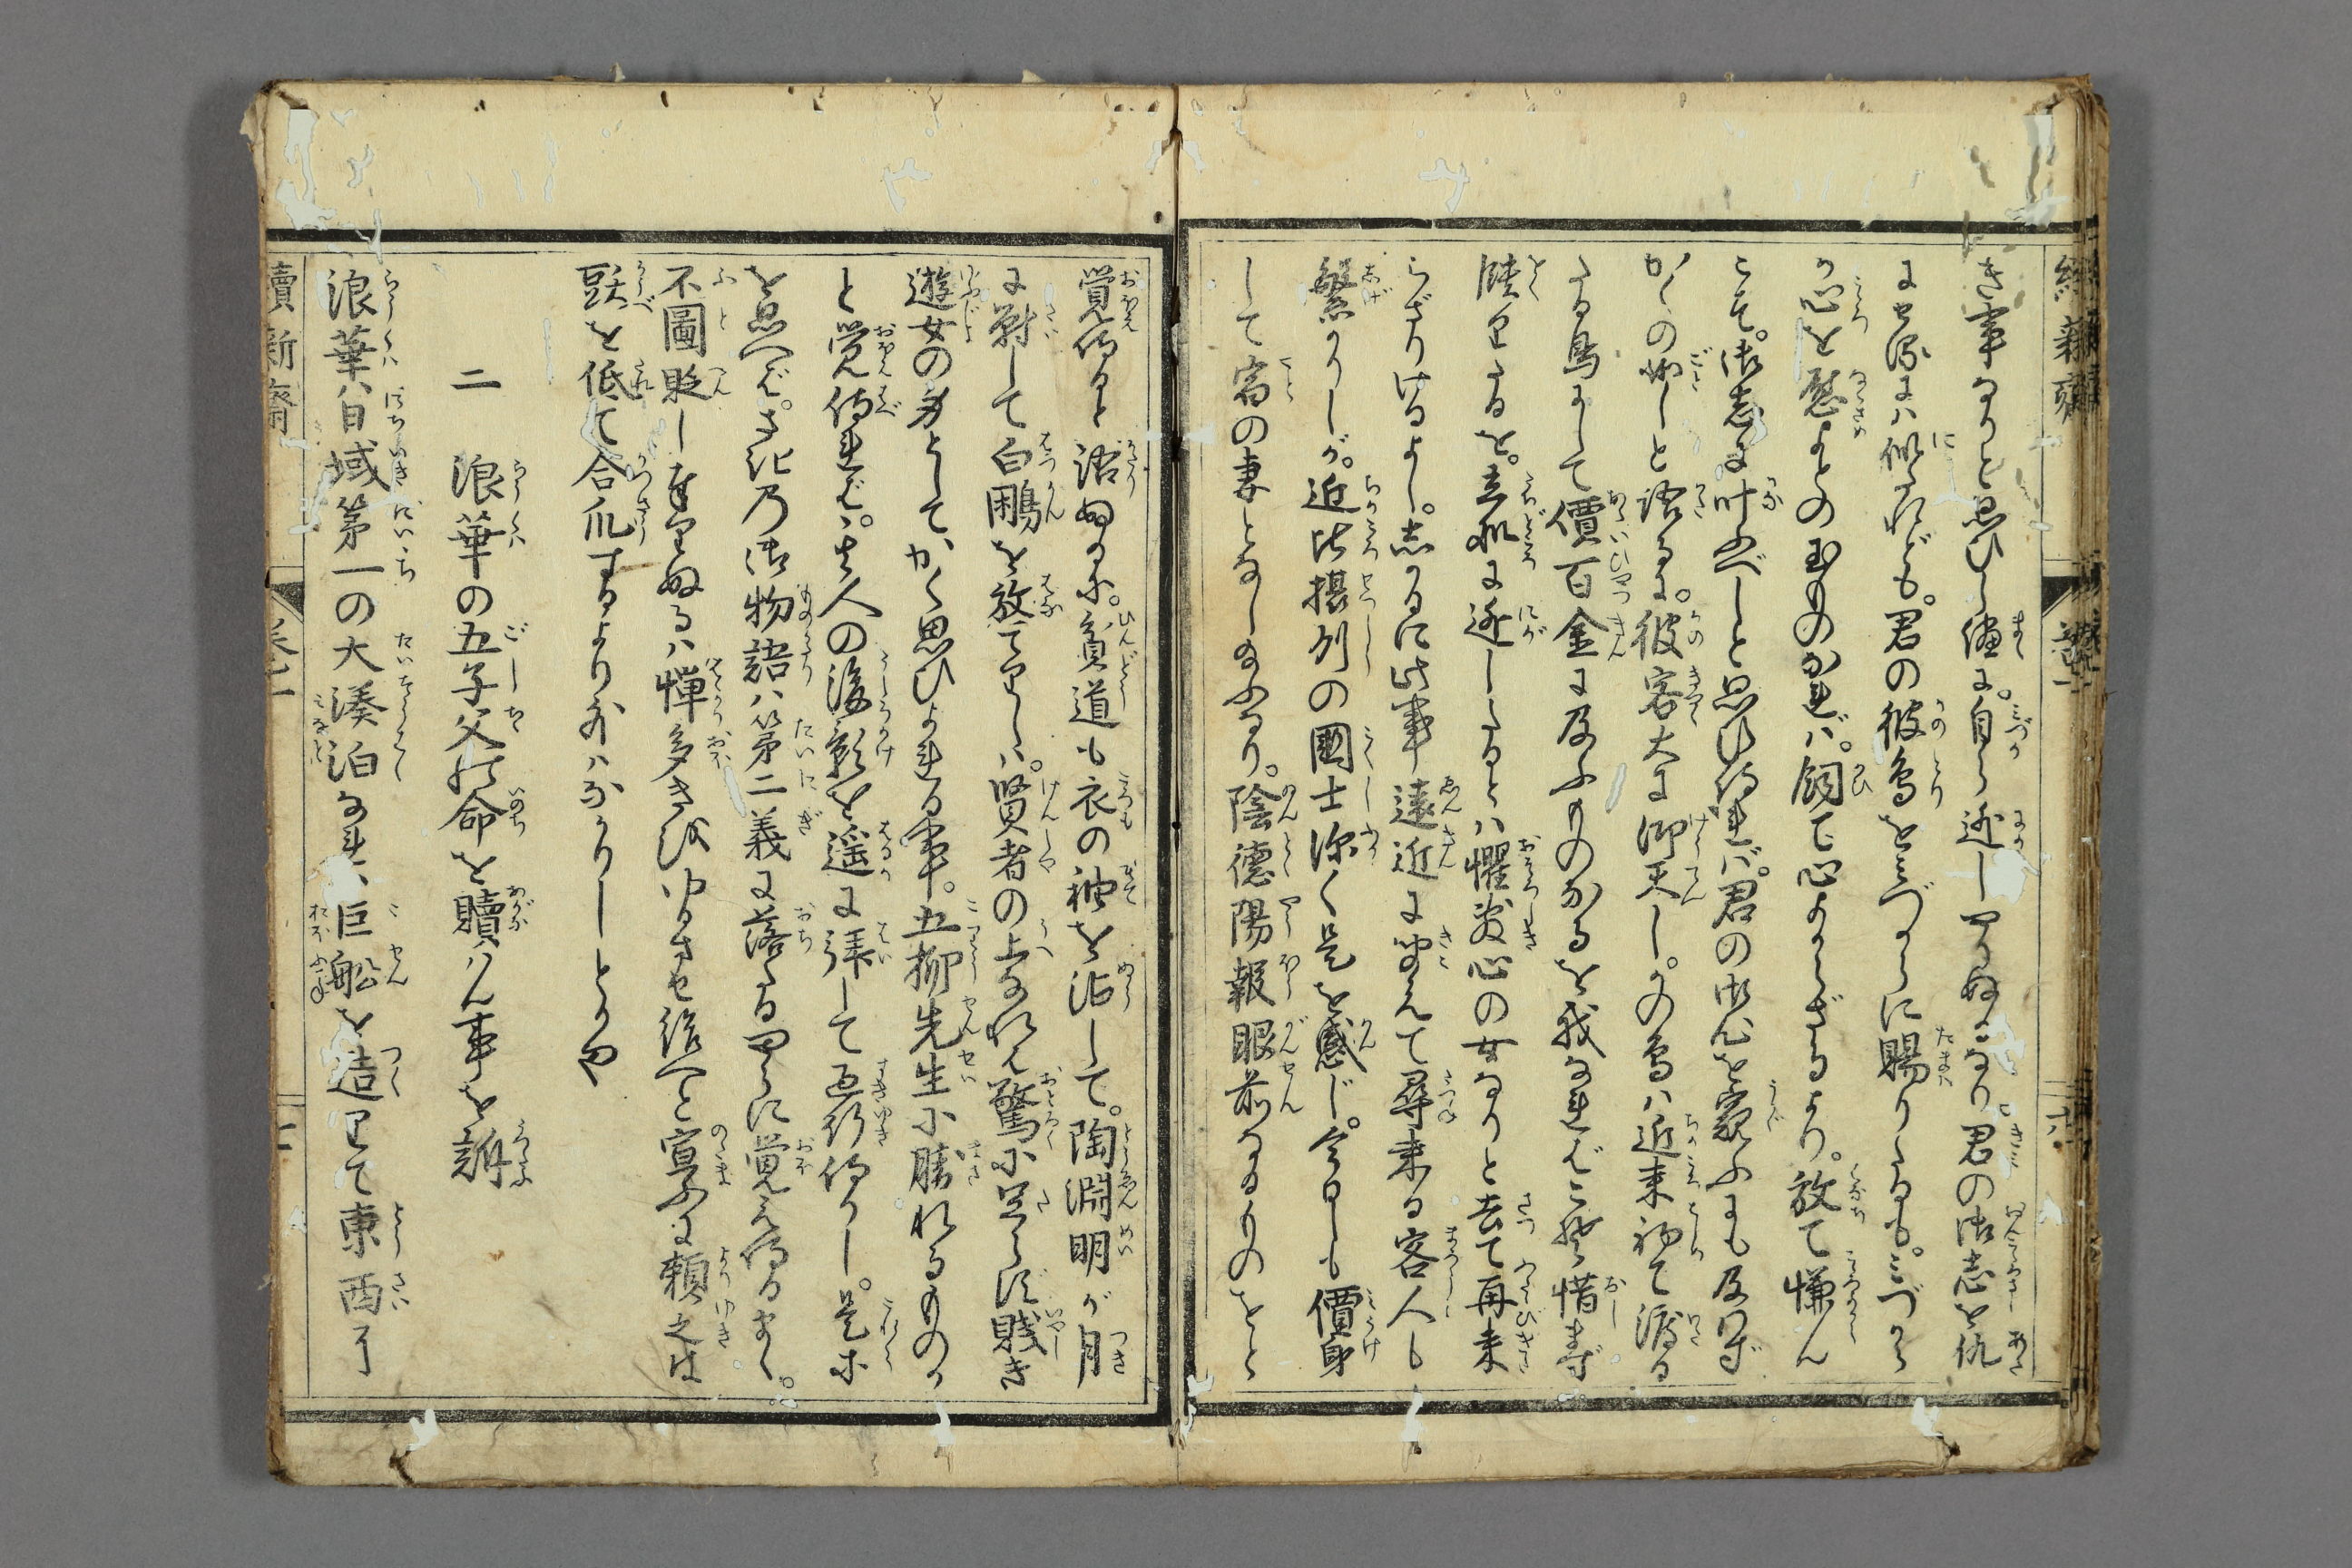 き事なりと思ひし儘に。自ら逃しやりぬるなり。君の御志を仇
にせるには似たれども。君の彼鳥をみづからに賜りたるも。みづから
が心を慰よとのものなれば。飼て心よからざるより。放て慊ん
こそ。御志に叶ふべしと思ひ侍れば。君の御心を窺ふにも及ばず
かくの如しと語るに。彼客大に仰天し。かの鳥は近来初て渡る
たる鳥にして價百金に及ふものなるを我なればこそ惜まず
をくりたるを。立所に逃したるとは懼敷心の女なりと去て再来
らざりけるよし。志かるに此事遠近に聞えて尋来る客人も
繁かりしが。近比摂州の國士深く是を感じ。今日しも價身
して宿の妻となし給ふなり。陰徳陽報眼前なるものをと
覚侍ると語ぬるに。貧道も衣の袖を沾して。陶淵明が月
に對して白鷴を放てりしは。賢者の上なれば驚に足らず賤き
遊女の身として。かく思ひよれる事。五柳先生に勝れるものか
と覚侍れば。其人の後影を遥に拝して過行侍りし。是等
を思へば。さきの御物語は第二義に落たるやうに覚え侍るまゝ。
不圖貶し奉りぬるは憚多きをゆるさせ給へと宣ふに頼之は
頭を低て合爪するより外はなかりしとかや
二　浪華の五子父の命を贖はん事を訴
浪華は日域第一の大湊泊なれは巨舩を造りて東西に
續新齋
巻二